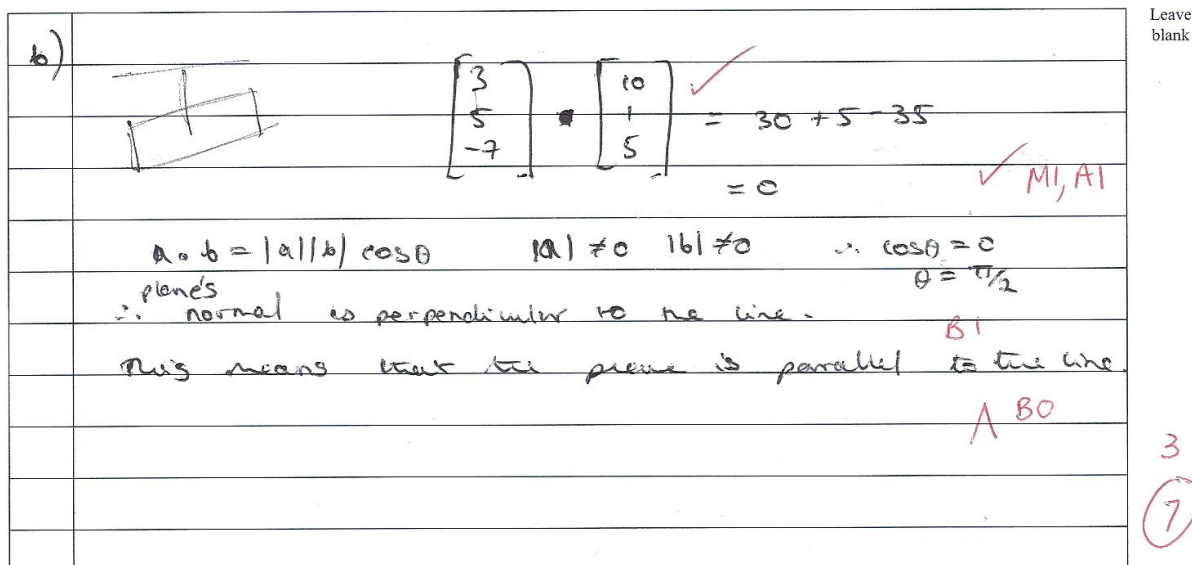 Leave
blank
b)
[3 5 -7] • [10 1 5] ✓ = 30 + 5 - 35
= 0 ✓ M1, A1
a . b = |a||b| cosθ |a| ≠ 0 |b| ≠ 0 ∴ cosθ = 0
θ = π/2
∴ plane's normal is perpendicular to the line.
B1
This means that the plane is parallel to the line.
∧ B0
3
7